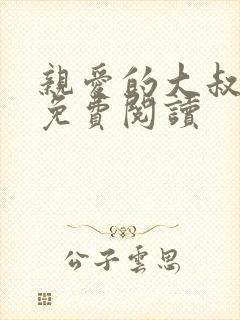 親愛的大叔
免費閱讀
公子雲思